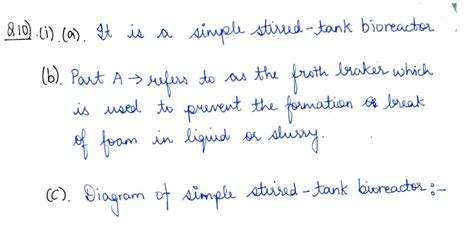 Q10).(i).(a). It is a simple stirred-tank bioreactor
(b). Part A → refers to as the froth braker which
is used to prevent the formation or break
of foam in liquid or slurry.
(c). Diagram of simple stirred-tank bioreactor:-